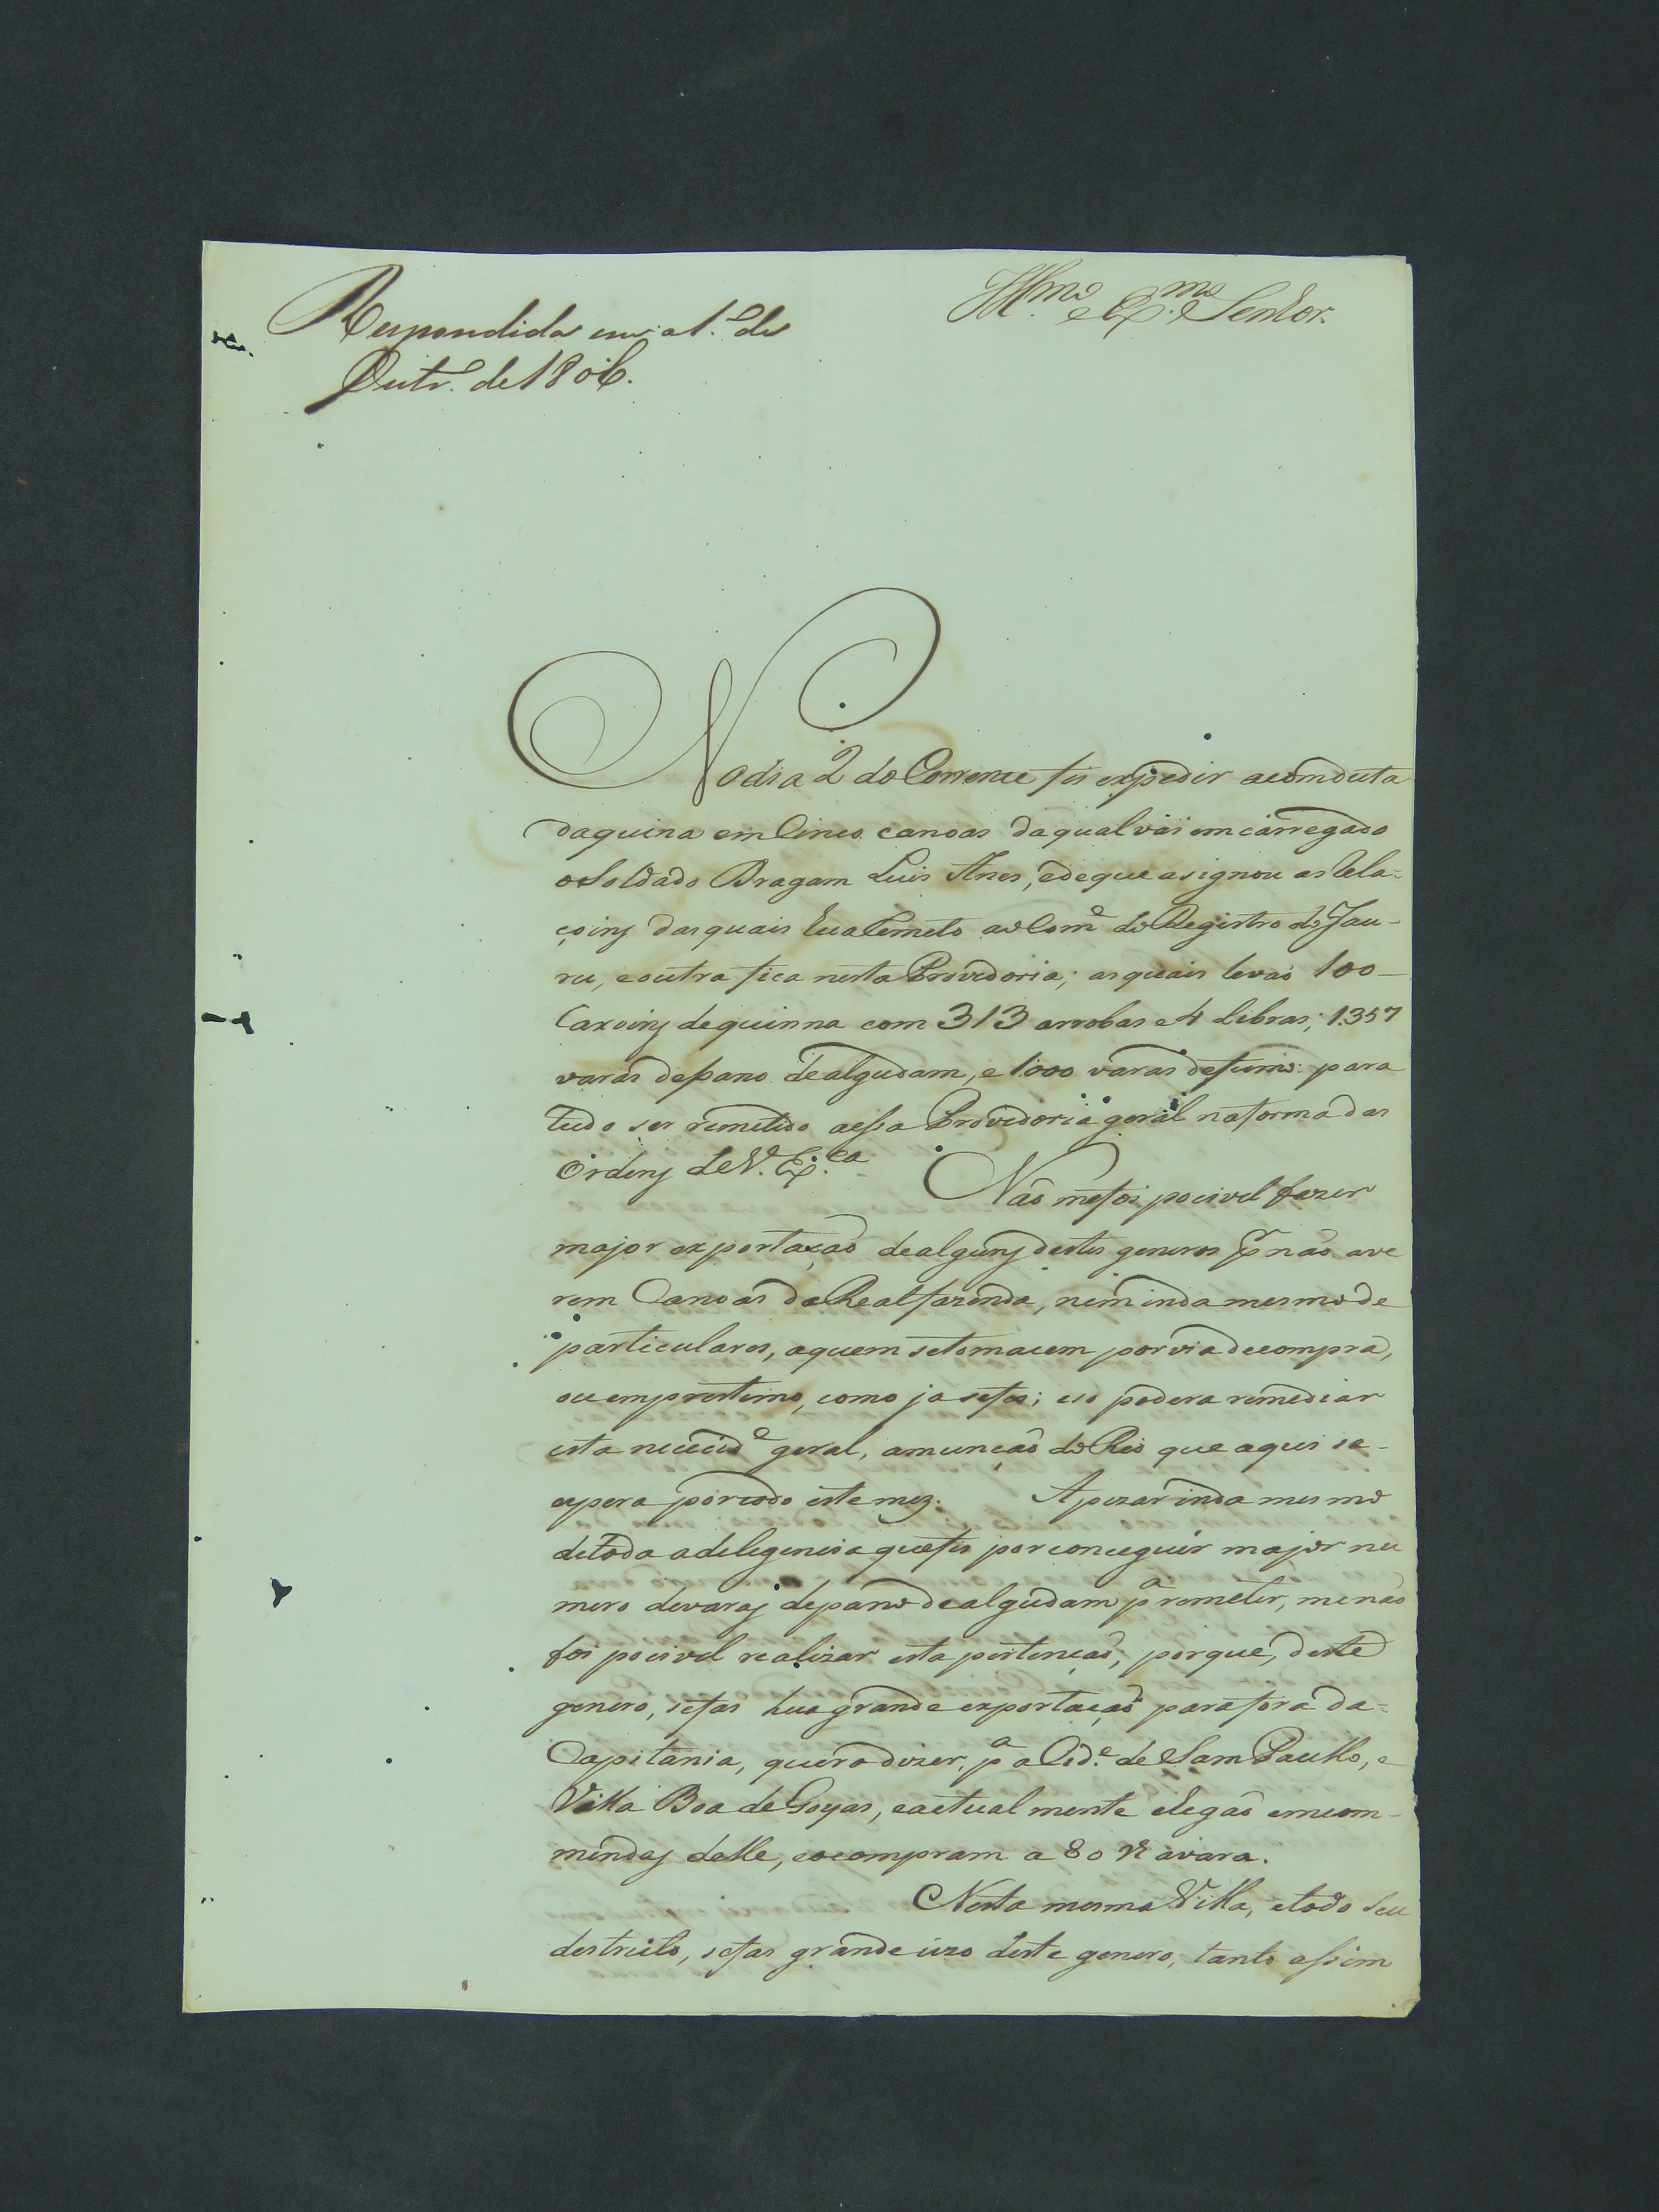 Respondida em o 1.º de
Outr.º de 1806.
Ill.mo e Ex.mo Senhor.
No dia 2 do Corrente fis expedir a comduta
da quina em Cinco canoas da qual vai emcarregado
o Soldado Dragam Luis Anes, e de que asignou as Rela-
çoins das quais hua Remeto ao Com.e do Registro do Jau-
ru, e outra fica nesta Provedoria; as quais levaõ 100
Caxoins de quinna com 313 arrobas e 4 Libras; 1357
varas de pano de algudam, e 1000 varas de fumo: para
tudo ser remetido a essa Provedoria geral na forma das
Ordens de V. Ex.ca
Naõ me foi pocivel fazer
major exportaçaõ de alguns destes generos p.r naõ ave
rem Canoas da Real fazenda, nem inda mesmo de
particulares, a quem se tomacem por via de compra,
ou emprestimo, como ja se fes; e so podera remediar
esta nececid.e geral, a munçaõ do Rio que aqui se-
espera por todo este mez. Apezar inda mesmo
de toda a delegencia que fis por conceguir major nu
mero de varas de pano de algudam p.a remeter, me naõ
foi pocivel realizar esta pertençaõ; porque, deste
genero, se fas hua grande exportaçaõ para fora da-
Capitania, quero dizer, p.a a Cid.e de Sam Paullo, e
Villa Boa de Goyas, e actualmente chegaõ emcom-
mendas delle, e o compram a 80 rs a vara.
Nesta mesma Villa, e todo seu
destrito, se fas grande uzo deste genero, tanto assim